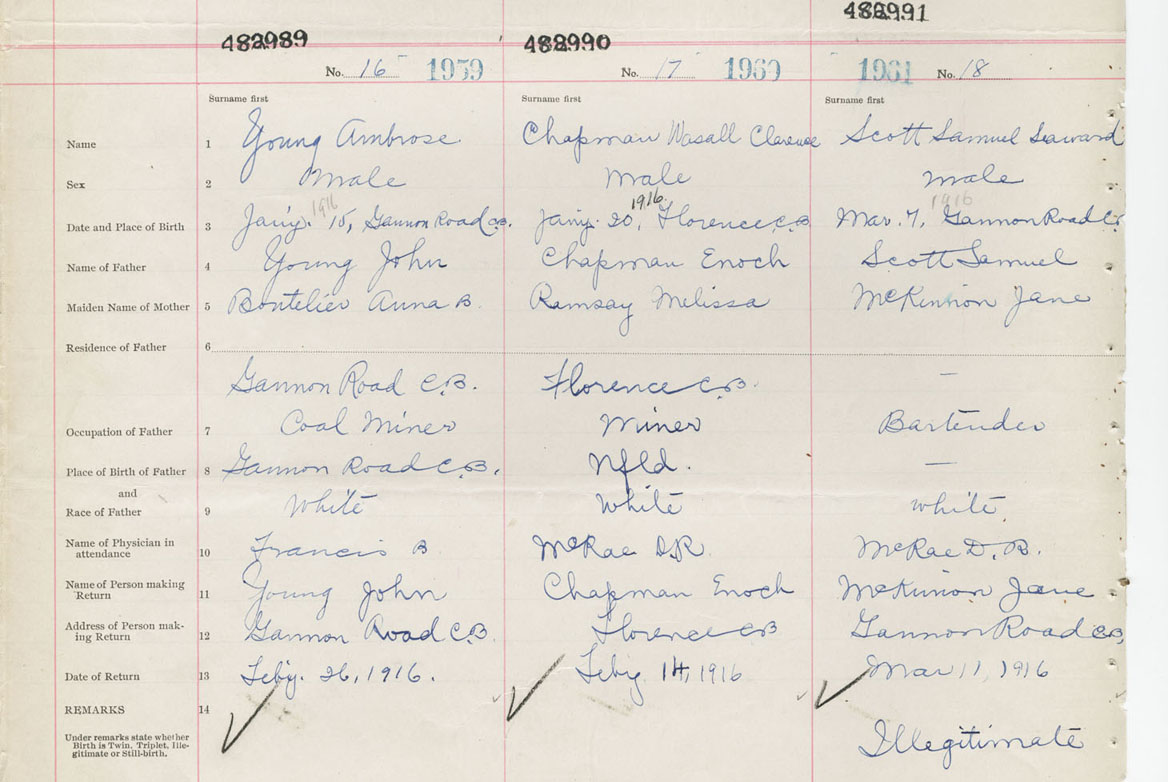 482989 482990 482991
No. 16 1959 No. 17 1960 1961 No. 18
Surname first Surname first Surname first
Name 1 Young Ambrose Chapman Wasall Clarence Scott Samuel Seaward
Sex 2 Male Male Male
1916 1916 1916
Date and Place of Birth 3 Jany. 15, Gannon Road C.B. Jany. 20, Florence C.B Mar. 7, Gannon Road C.
Name of Father 4 Young John Chapman Enoch Scott Samuel
Maiden Name of Mother 5 Boutelier Anna B. Ramsay Melissa McKinnon Jane
Residence of Father 6
Gannon Road C.B. Florence C.B. —
Occupation of Father 7 Coal Miner Miner Bartender
Place of Birth of Father 8 Gannon Road C.B. Nfld. —
and
Race of Father 9 White White white
Name of Physician in
attendance 10 Francis B McRae D.R. McRae D. R.
Name of Person making
Return 11 Young John Chapman Enoch McKinnon Jane
Address of Person mak-
ing Return 12 Gannon Road C.B. Florence CB Gannon Road C.B.
Date of Return 13 Feby. 26, 1916. Feby 14, 1916 Mar 11, 1916
REMARKS 14
Under remarks state whether
Birth is Twin, Triplet, Ille-
gitimate or Still-birth.
Illegitimate